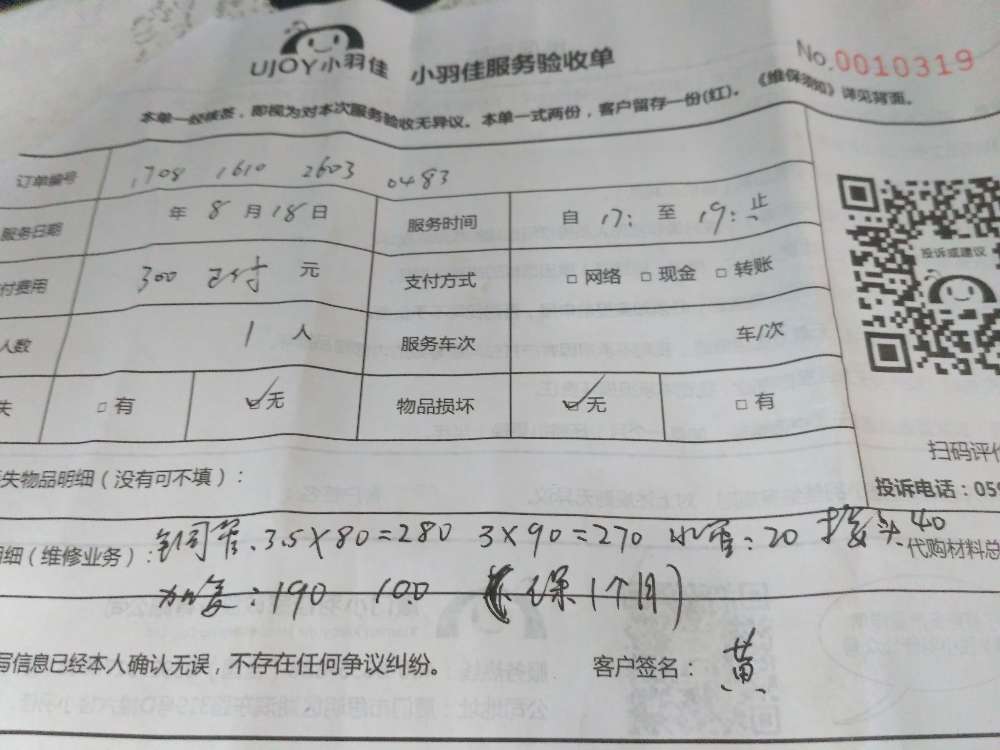 UJOY小羽佳 小羽佳服务验收单 No.0010319
本单一经核签，即视为对本次服务验收无异议。本单一式两份，客户留存一份(红)。《维保须知》详见背面。
订单编号 1708 1610 2603 0483
服务日期 年 8 月 18 日 服务时间 自 17: 至 19: 止
付费用 300 已付 元 支付方式 □ 网络 □ 现金 □ 转账
投诉或建议
人数 1 人 服务车次 车/次
失 □ 有 ☑ 无 物品损坏 ☑ 无 □ 有
失物品明细（没有可不填）：
扫码评价
投诉电话：059
明细（维修业务）：铜管:3.5×80=280 3×90=270 水管:20 接头40
代购材料总
加氟:190 100 保1个月)
写信息已经本人确认无误，不存在任何争议纠纷。 客户签名： 黄